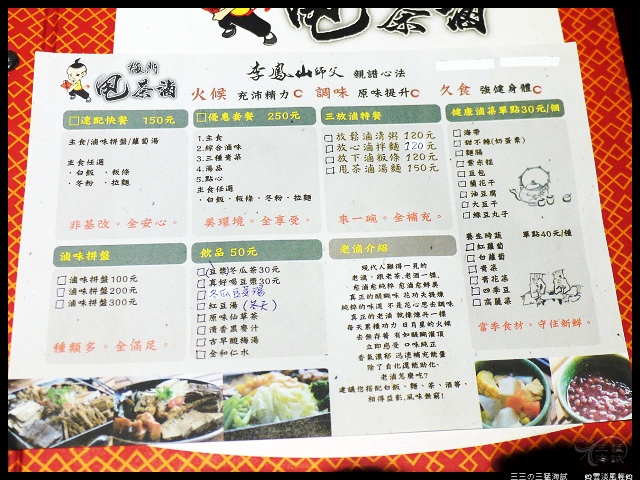 梅門
甩茶滷
李鳳山師父 親譜心法
火候 充沛精力 調味 原味提升 久食 強健身體
速配快餐 150元
主食/滷味拼盤/蘿蔔湯
主食任選
·白飯 ·粄條
·冬粉 ·拉麵
非基改。全安心。
優惠套餐 250元
1.主食
2.綜合滷味
3.三種青菜
4.湯品
5.點心
主食任選
·白飯·粄條·冬粉·拉麵
美環境。全享受。
三放滷特餐
放鬆滷清粥 120元
放心滷拌麵 120元
放下滷粄條 120元
甩茶滷湯麵 150元
來一碗。全補充。
健康滷菜單點30元/個
海帶
甜不辣(奶蛋素)
麵腸
素米糕
豆包
蘭花干
油豆腐
大豆干
綠豆丸子
養生時蔬 單點40元/種
紅蘿蔔
白蘿蔔
青菜
青花菜
四季豆
高麗菜
當季食材。守住新鮮。
滷味拼盤
滷味拼盤100元
滷味拼盤200元
滷味拼盤300元
種類多。全滿足。
飲品 50元
冬瓜茶30元
真好喝豆漿30元
冬瓜豆漿湯
紅豆湯 (冬天)
原味仙草茶
清香黑麥汁
古早酸梅湯
全和仁水
老滷介紹
現代人難得一見的
老滷,跟老茶、老酒一樣,
愈滷愈純粹 愈滷愈鮮美
真正的醍醐味 花功夫提煉
純粹的味道 不是花心思去調味
真正的老滷 就像煉丹一樣
每天累積功力 日月星的火候
去無存菁 有如醍醐灌頂
立即感受 口味純正
香氣濃郁 迅速補充能量
除了自化還能助化~
老滷怎麼吃?
建議您搭配白飯、麵、茶、酒等,
相得益彰,風味無窮!
三三の三猛海試 雲淡風輕